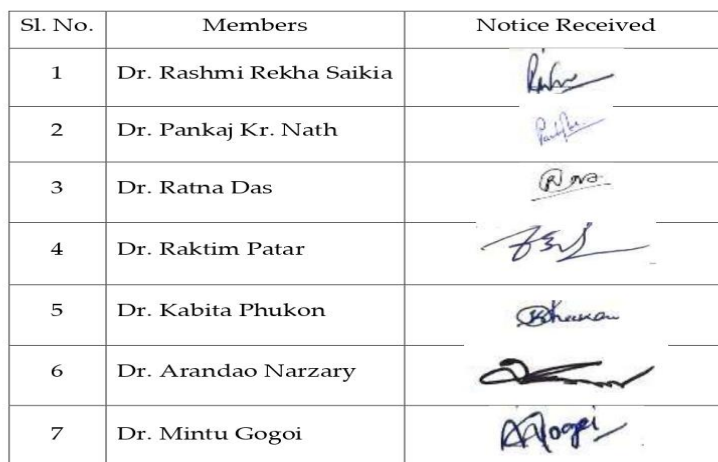 Sl. No. Members Notice Received
1 Dr. Rashmi Rekha Saikia
2 Dr. Pankaj Kr. Nath
3 Dr. Ratna Das
4 Dr. Raktim Patar
5 Dr. Kabita Phukon
6 Dr. Arandao Narzary
7 Dr. Mintu Gogoi